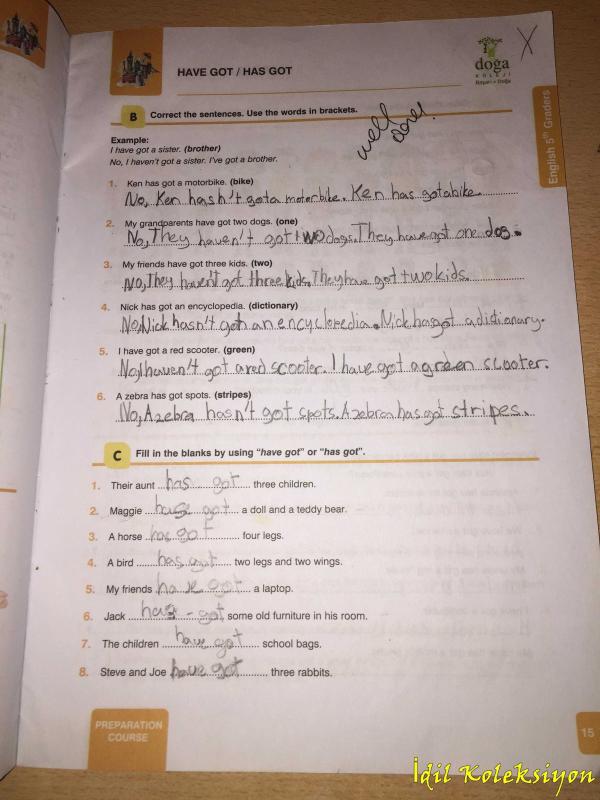 HAVE GOT / HAS GOT
doğa
KOLEJİ
X
B Correct the sentences. Use the words in brackets.
well
done!
English 5th Graders
Example:
I have got a sister. (brother)
No, I haven't got a sister. I've got a brother.
1. Ken has got a motorbike. (bike)
No, Ken hasn't got a motorbike. Ken has got a bike.
2. My grandparents have got two dogs. (one)
No, They haven't got two dogs. They have got one dog.
3. My friends have got three kids. (two)
No, They haven't got three kids. They have got two kids.
4. Nick has got an encyclopedia. (dictionary)
No, Nick hasn't got an encyclopedia. Nick has got a didionary.
5. I have got a red scooter. (green)
No, I haven't got a red scooter. I have got a green scooter.
6. A zebra has got spots. (stripes)
No, A zebra hasn't got spots. A zebra has got stripes.
C Fill in the blanks by using "have got" or "has got".
1. Their aunt has got three children.
2. Maggie got a doll and a teddy bear.
3. A horse has got four legs.
4. A bird has got two legs and two wings.
5. My friends have got a laptop.
6. Jack got some old furniture in his room.
7. The children have got school bags.
8. Steve and Joe have got three rabbits.
PREPARATION
COURSE
15
İdil Koleksiyon